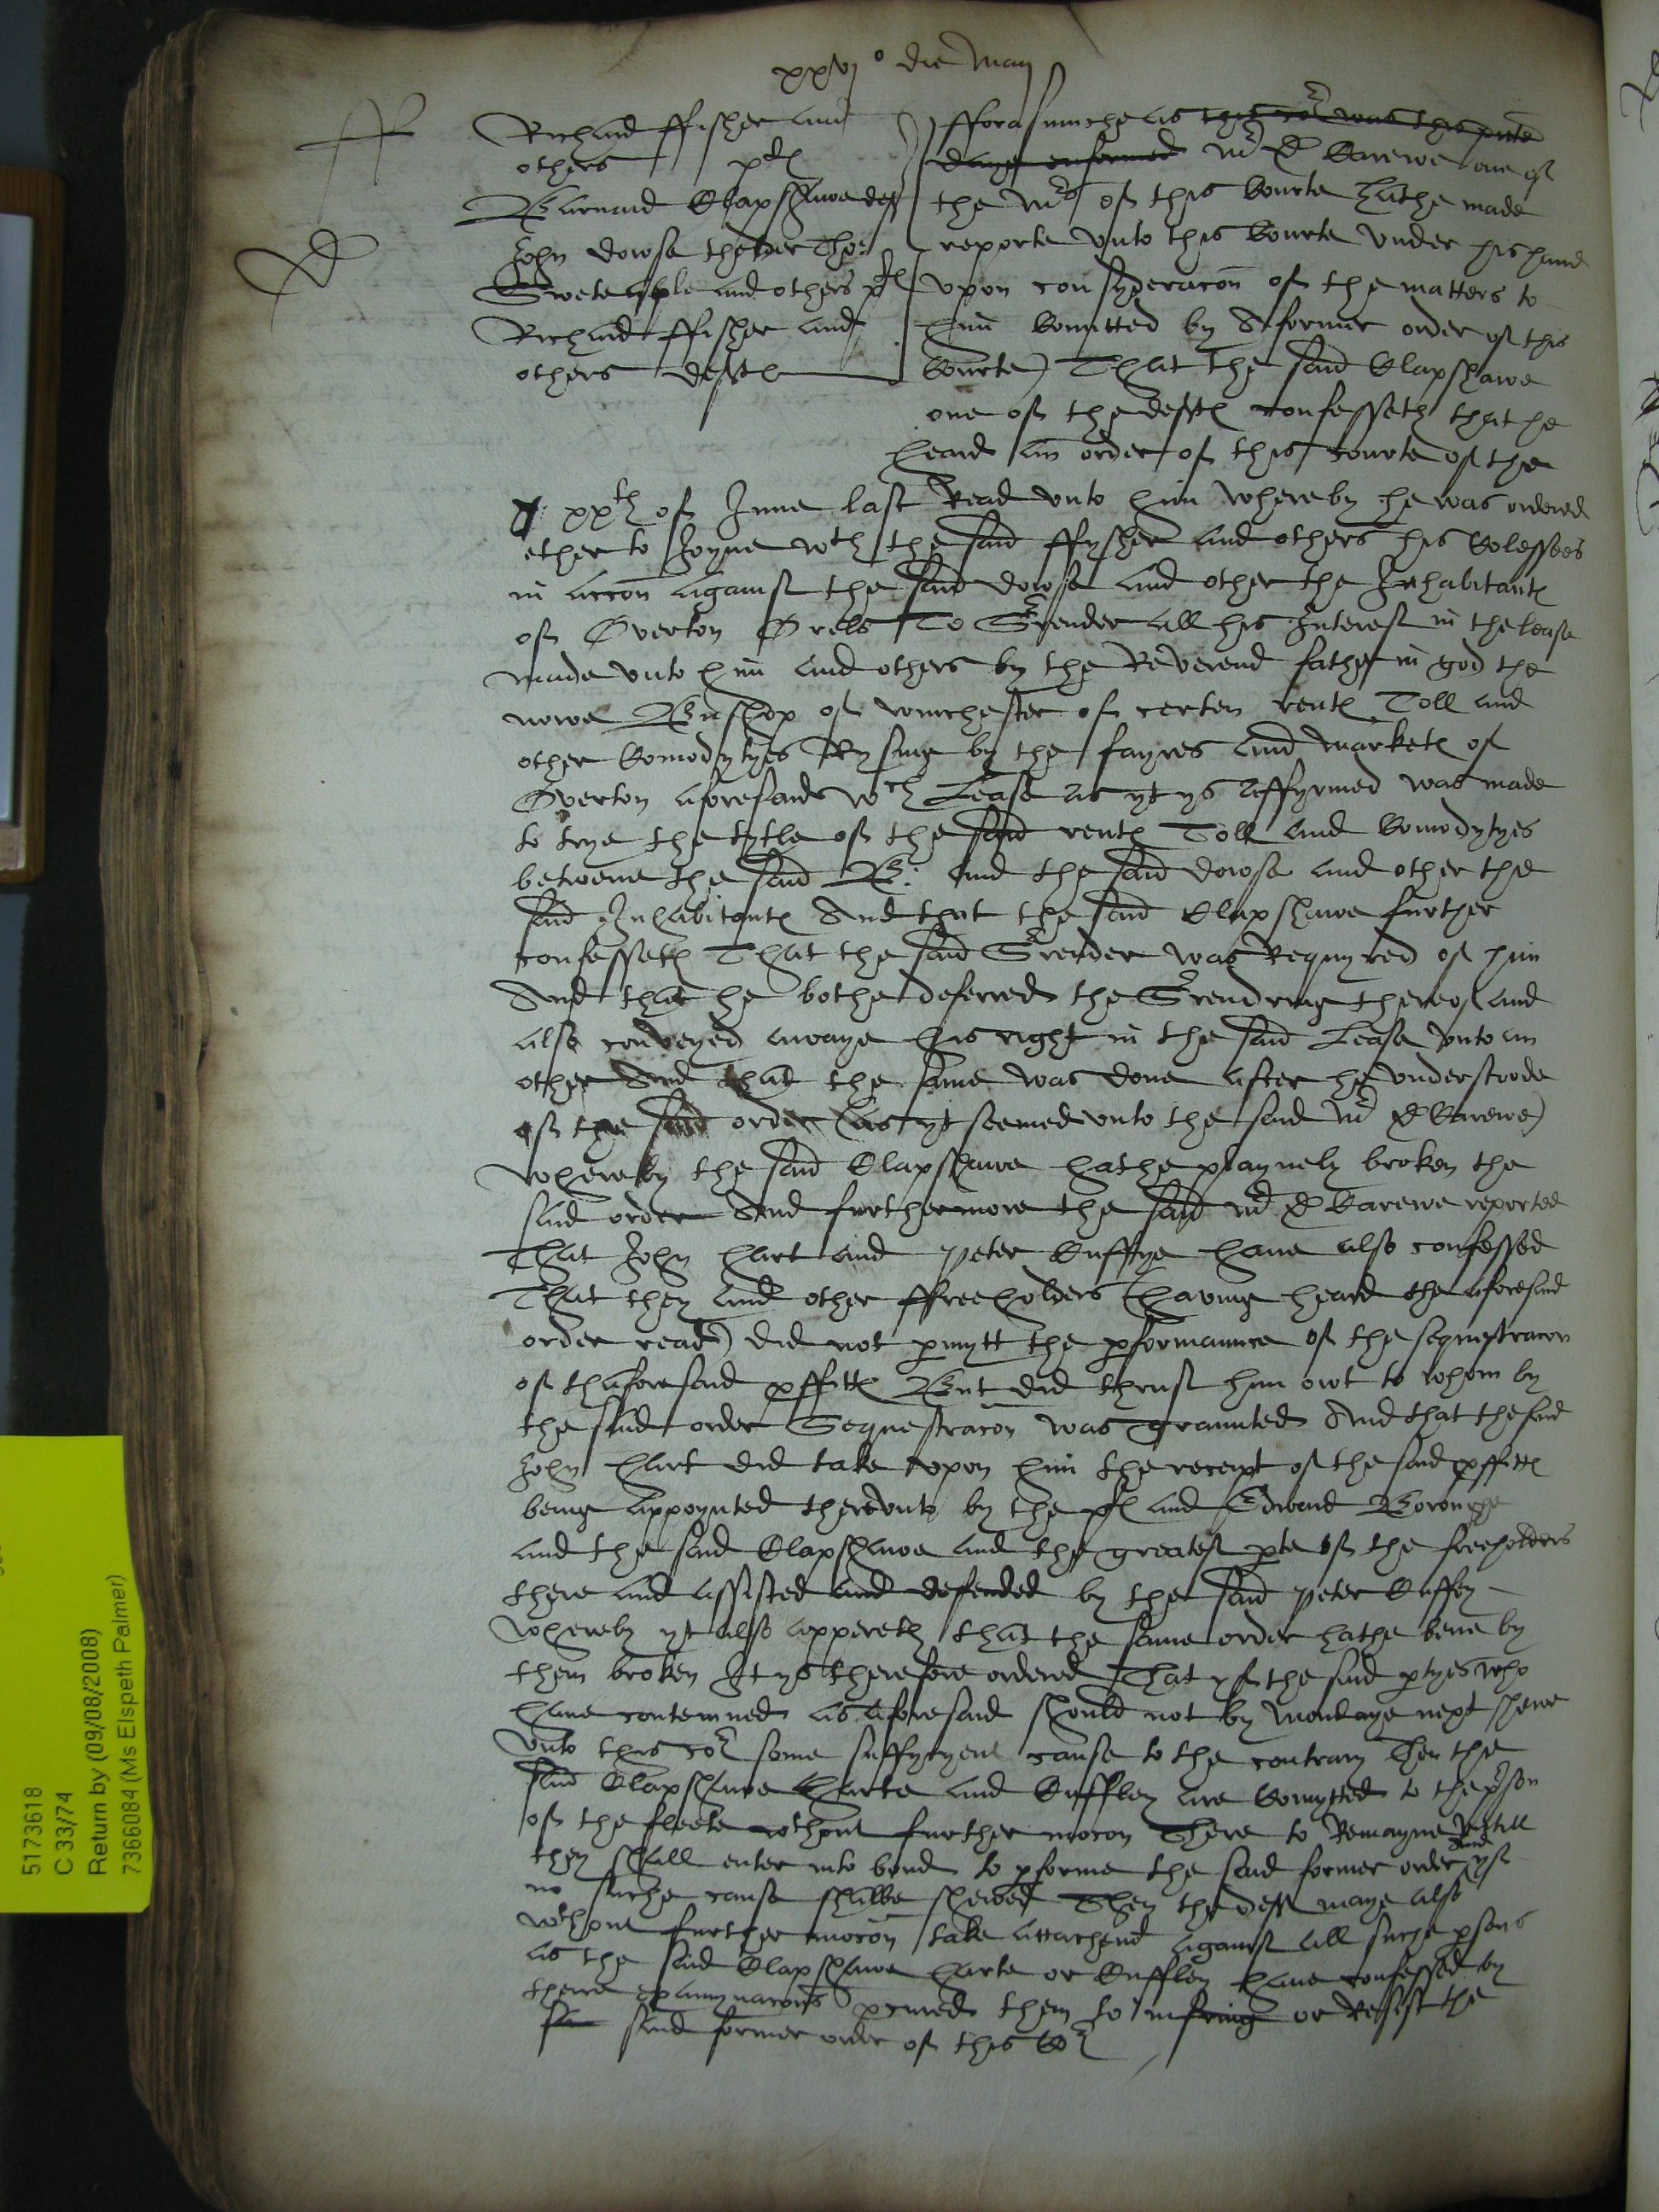 xxvj° die Maij
ff
D
Richard ffisher and
others pltes
Barnard Clapshawe deft
John dowse thelder Tho:
Sweteaple and others pltes
Richard ffisher and
others deftes
fforasmuche as that cor was this pnte
daye enformed Mr D Carewe one of
the Mrs of this Courte hathe made
reporte vnto this Courte vnder his hand
vpon consyderacon of the matters to
him Comitted by A former order of this
Courte) That the said Clapshawe
one of the deftes confesseth that he
heard an order of this courte of the
xxth of June last Read vnto him whereby he was ordered
ether to Joyne wth the said ffysher and others his Colessees
in accon against the said dowse and other the Inhabitantes
of Overton Or els To Srender all his Interest in the lease
made vnto him and others by the Reverend father in god the
nowe Busshop of winchester of certen rentes Toll and
other Comodytyes Rysing by the fayres and markets of
Overton aforesaid wch Lease as yt ys affyrmed was made
to trye the tytle of the said rentes Toll and Comodytyes
betwene the said B: and the said dowse and other the
said Inhabitantes And that the said Clapshawe further
confesseth That the said Srender was Requyred of him
And that he bothe deferred the Srendring thereof and
also conveyed awaye his right in the said Lease vnto an
other And that the same was done after he vnderstoode
of the said order (as yt seemed vnto the said Mr D Carewe)
whereby the said Clapshawe hathe playnely broken the
said order And furthermore the said Mr D Carewe reported
That John Hart and Peter Cufflye haue also confessed
That they and other ffreeholders (having heard the aforesaid
order read) did not pmytt the pformaunce of the sequestracon
of thaforesaid pffittes But did thrust him owt to whom by
the said order Sequestracon was graunted And that the said
John Hart did take vpon him the receipt of the said pffittes
being appoynted therevnto by the pl and Edward Boronghe
and the said Clapshawe and the greatest pte of the freeholders
there and assisted and defended by the said Peter Cuffley
whereby yt also appereth that the same order hathe bene by
them broken It ys therefore ordered That yf the said ptyes who
haue contemned as aforesaid should not by Mondaye next shewe
vnto this cor some suffycyent cause to the contrary Then the
said Clapshawe Harte and Cuffley are Comytted to the prson
of the fleete wthout further mocon There to Remayne vntill
they shall enter into bond to pforme the said former order And yf
no suche cause shalbe shewed Then the deft maye also
wthout further mocon take attachemt against all suche psons
as the said Clapshawe Harte or Cuffley haue confessed by
there examynacons pcured them to infring or Resist the
sa said former order of this Cor
5173618
C 33/74
Return by (09/08/2008)
7366084 (Ms Elspeth Palmer)